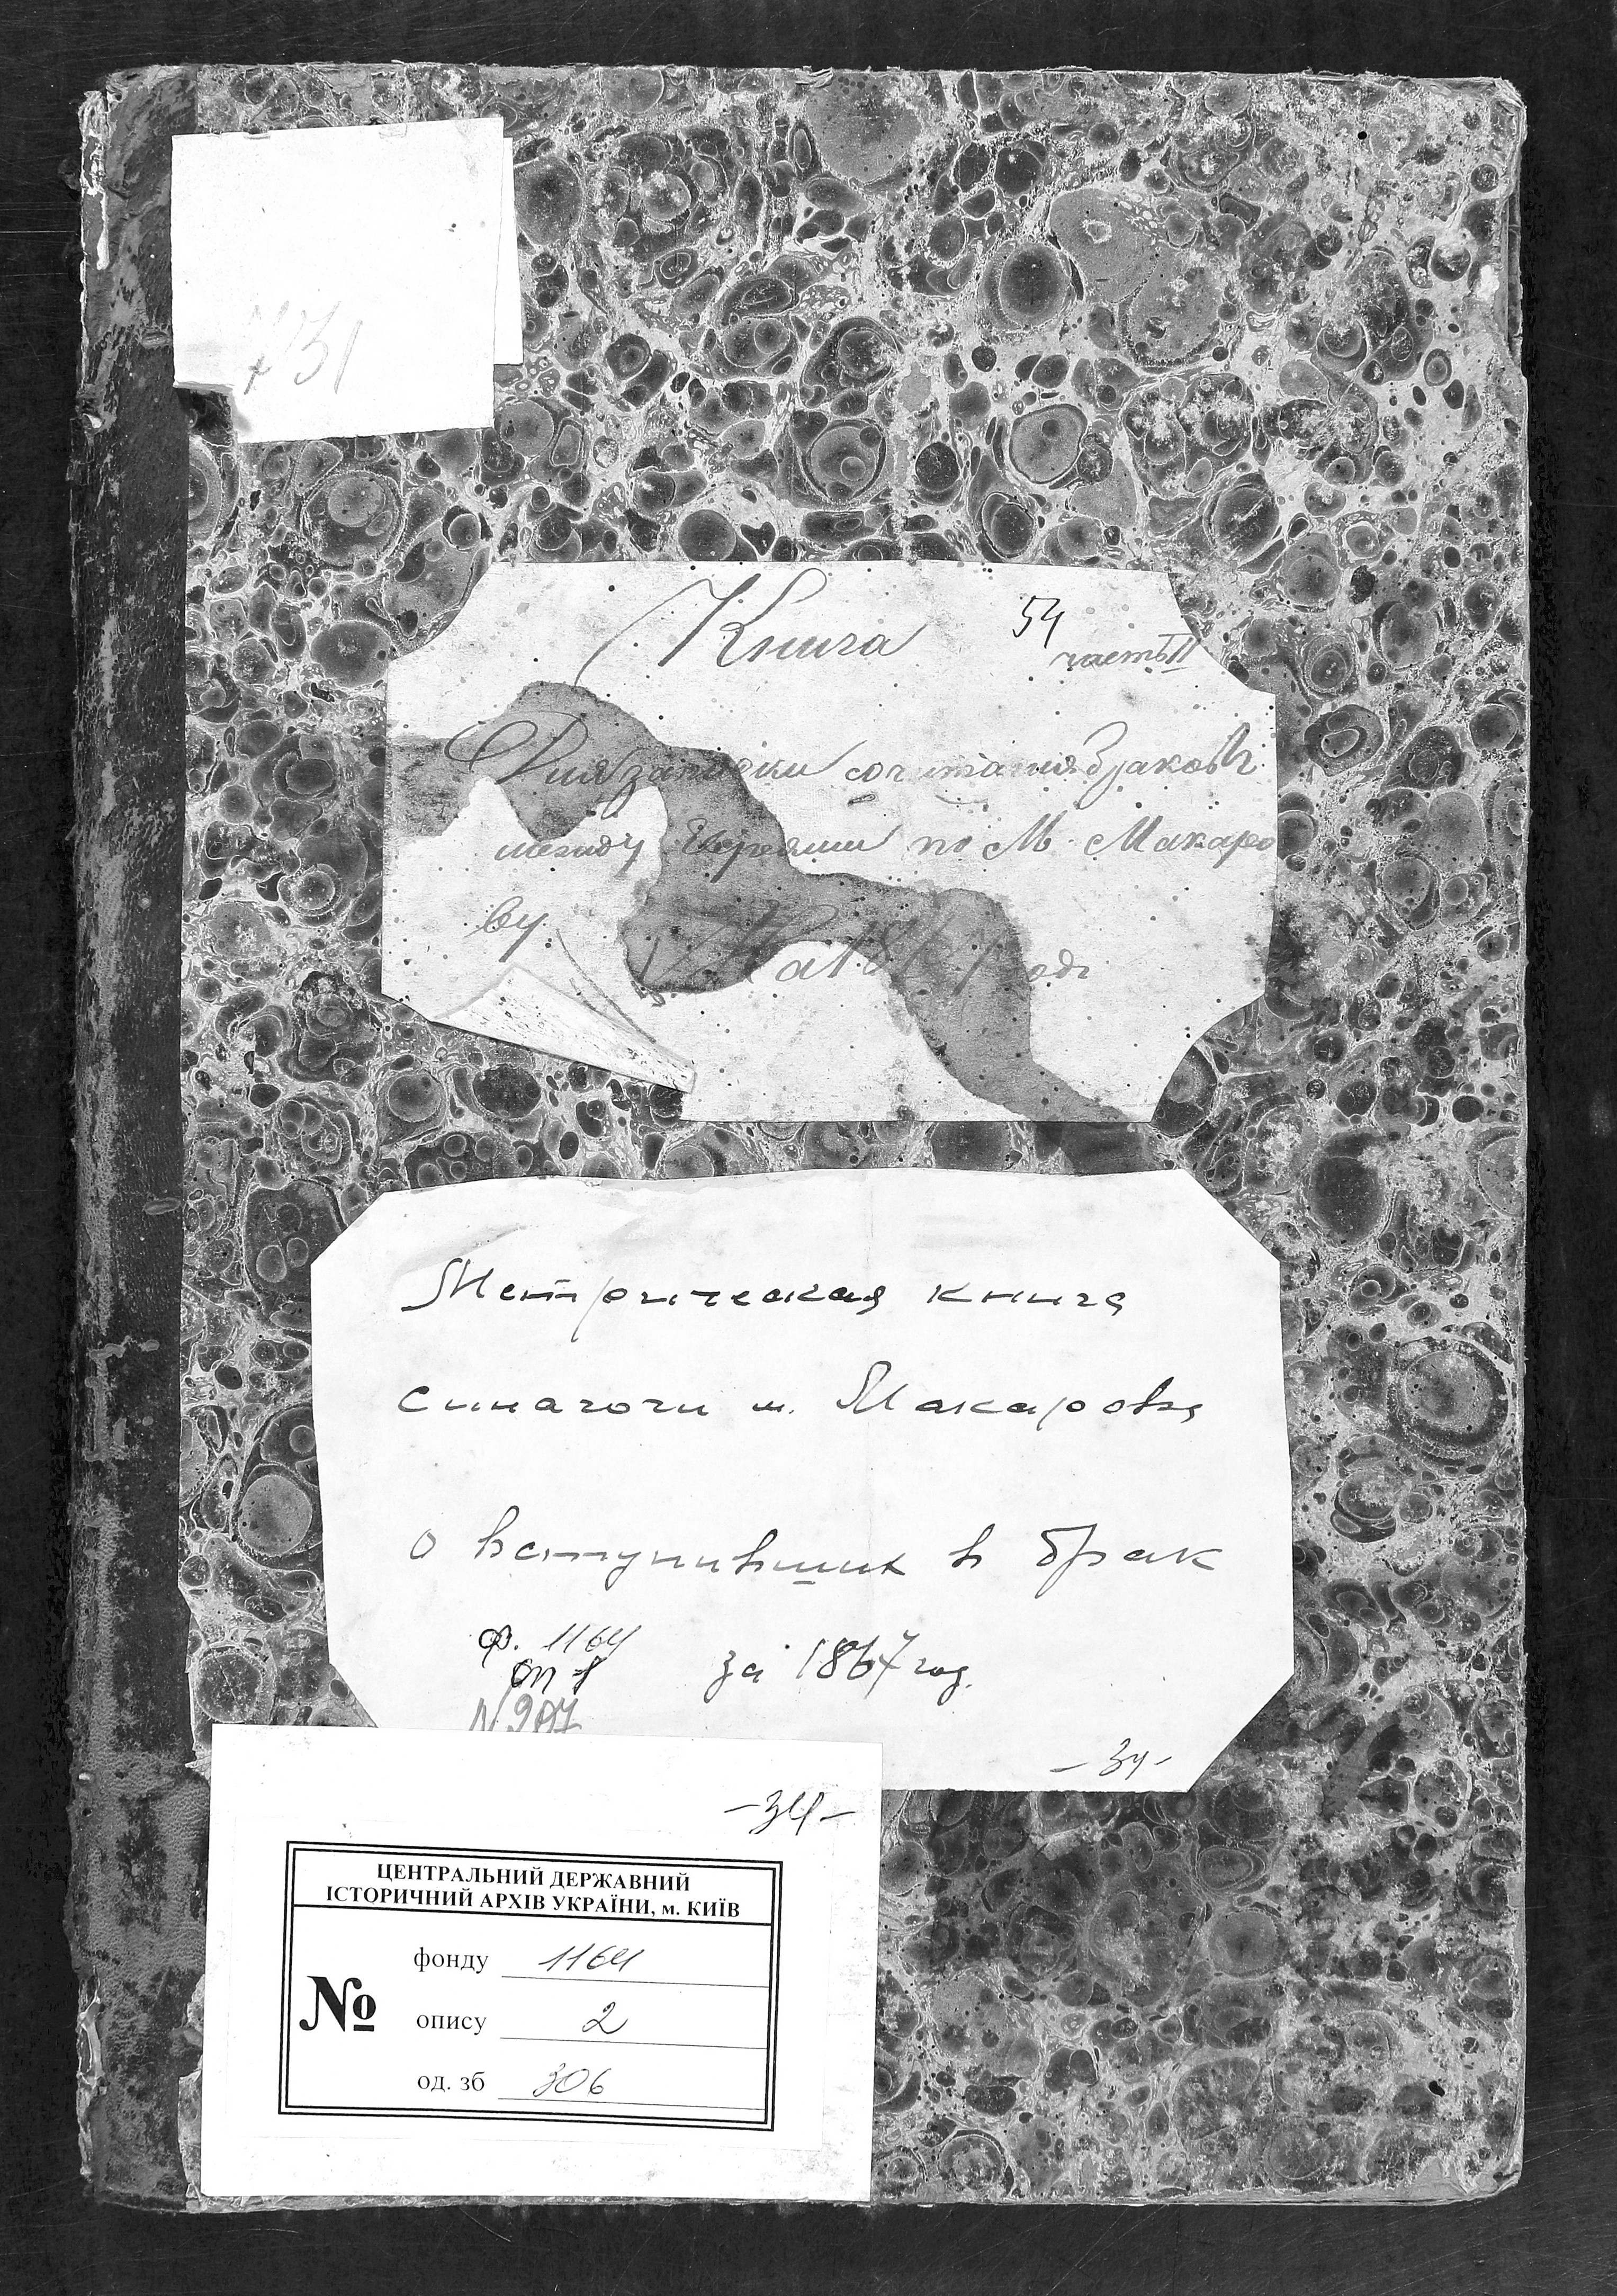 731
Книга
54
часть II
Для записки сочитания браковъ
между Евреями по М. Макаро
ву
На 1867 годъ
Метрическая книга
синагоги м. Макарова
о вступивших в брак
ф. 1164
оп 1
за 1867 год.
N 907
-34-
-34-
ЦЕНТРАЛЬНИЙ ДЕРЖАВНИЙ
ІСТОРИЧНИЙ АРХІВ УКРАЇНИ, м. КИЇВ
№
фонду 1164
опису 2
од. зб 306